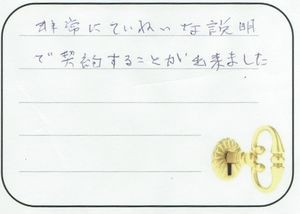 非常にていねいな説明
で契約することが出来ました